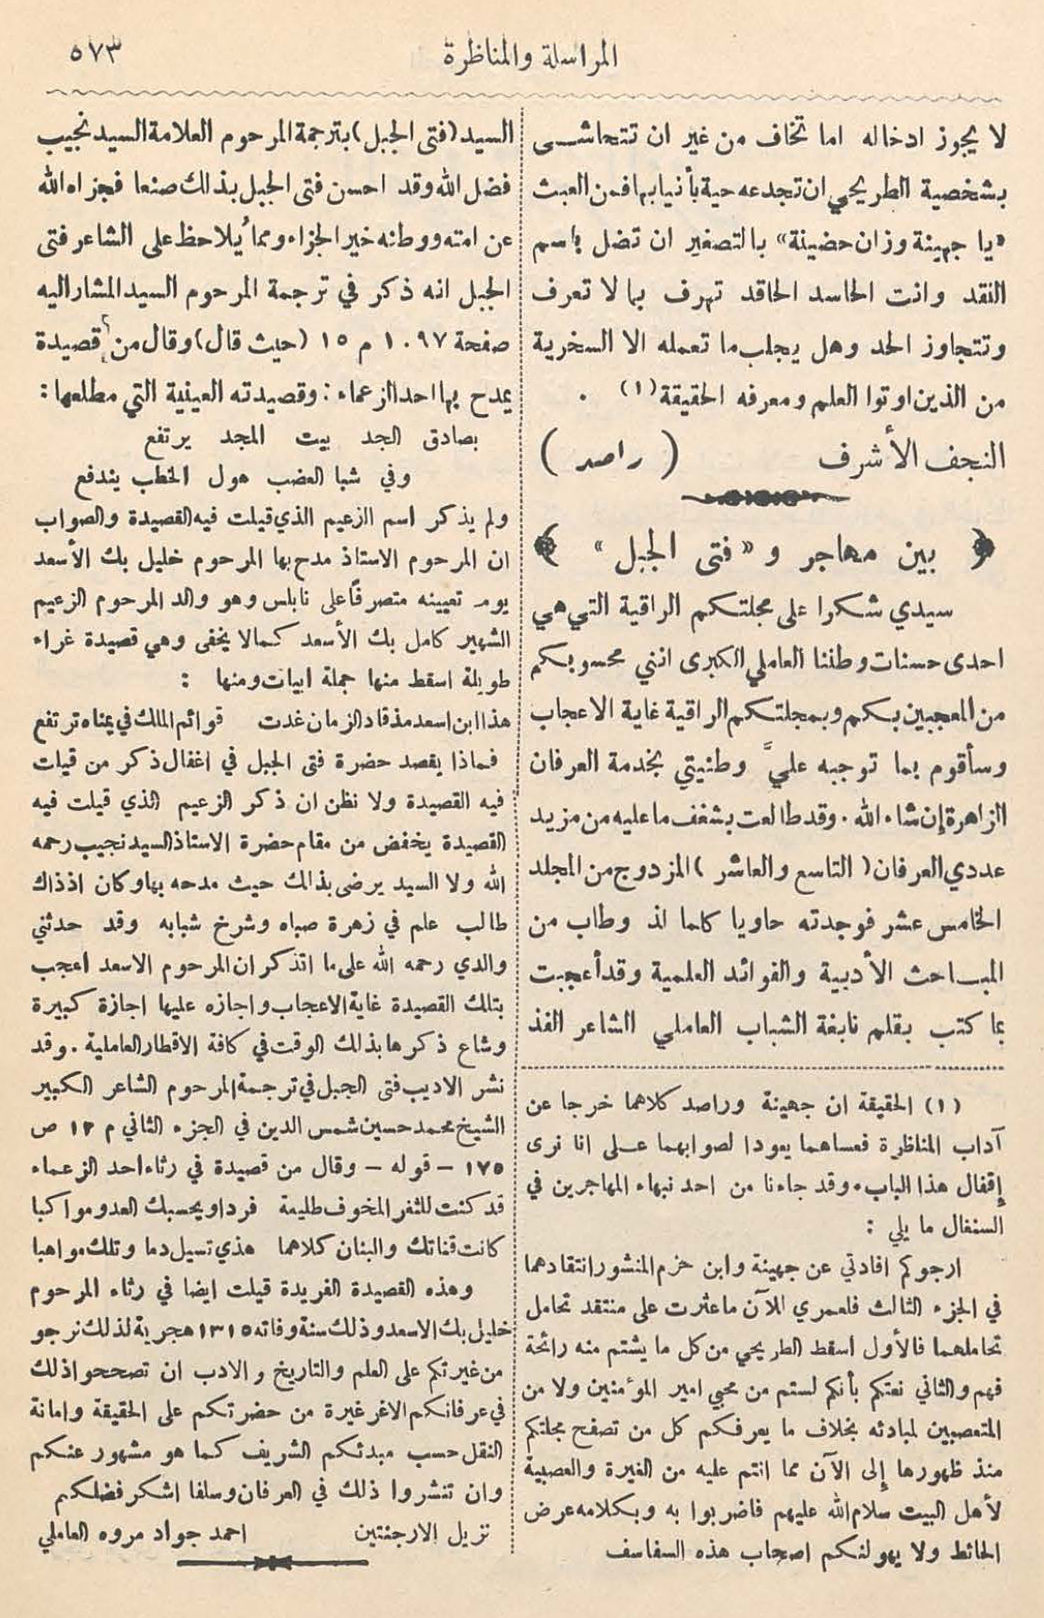 المراسلة والمناظرة
٥٧٣
لا يجوز ادخاله اما تخاف من غير ان تتحاشى
بشخصية الطريحي ان تجدعه حية بأنيابها فمن العبث
«يا جهينة وزان حضينة» بالتصغير ان تضل باسم
النقد وانت الحاسد الحاقد تهرف بما لا تعرف
وتتجاوز الحد وهل يجلب ما تعمله الا السخرية
من الذين اوتوا العلم ومعرفه الحقيقة (١) .
النجف الأشرف ( راصد )
﴿ بين مهاجر و «فتى الجبل» ﴾
سيدي شكرا على مجلتكم الراقية التي هي
احدى حسنات وطننا العاملي الكبرى انني محسوبكم
من المعجبين بكم وبمجلتكم الراقية غاية الاعجاب
وسأقوم بما توجبه عليَّ وطنيتي بخدمة العرفان
الزاهرة إن شاء الله . وقد طالعت بشغف ما عليه من مزيد
عددي العرفان ( التاسع والعاشر ) المزدوج من المجلد
الخامس عشر فوجدته حاويا كلما لذ وطاب من
المباحث الأدبية والفوائد العلمية وقد أعجبت
بما كتب بقلم نابغة الشباب العاملي الشاعر الفذ
(١) الحقيقة ان جهينة وراصد كلاهما خرجا عن
آداب المناظرة فعساهما يعودا لصوابهما على انا نرى
إقفال هذا الباب . وقد جاءنا من احد نبهاء المهاجرين في
السنغال ما يلي :
ارجوكم افادتي عن جهينة وابن حزم المنشور انتقادهما
في الجزء الثالث فلعمري للآن ما عثرت على منتقد تحامل
تحاملهما فالأول اسقط الطريحي من كل ما يشتم منه رائحة
فهم والثاني نعتكم بأنكم لستم من محبي امير المؤمنين ولا من
المتعصبين لمبادئه بخلاف ما يعرفكم كل من تصفح مجلتكم
منذ ظهورها إلى الآن مما انتم عليه من الغيرة والعصبية
لأهل البيت سلام الله عليهم فاضربوا به وبكلامه عرض
الحائط ولا يهولنكم اصحاب هذه السفاسف
السيد (فتى الجبل) بترجمة المرحوم العلامة السيد نجيب
فضل الله وقد احسن فتى الجبل بذلك صنعا فجزاه الله
عن امته ووطنه خير الجزاء ومما يُلاحظ على الشاعر فتى
الجبل انه ذكر في ترجمة المرحوم السيد المشار اليه
صفحة ١٠٩٧ م ١٥ (حيث قال) وقال من قصيدة
يمدح بها احد الزعماء : وقصيدته العينية التي مطلعها :
بصادق الجد بيت المجد يرتفع
وفي شبا العضب هول الخطب يندفع
ولم يذكر اسم الزعيم الذي قيلت فيه القصيدة والصواب
ان المرحوم الاستاذ مدح بها المرحوم خليل بك الأسعد
يوم تعيينه متصرفًا على نابلس وهو والد المرحوم الزعيم
الشهير كامل بك الأسعد كما لا يخفى وهي قصيدة غراء
طويلة اسقط منها جملة ابيات ومنها :
هذا ابن اسعد مذ قاد الزمان غدت قوائم الملك في يمناه ترتفع
فماذا يقصد حضرة فتى الجبل في اغفال ذكر من قيلت
فيه القصيدة ولا نظن ان ذكر الزعيم الذي قيلت فيه
القصيدة يخفض من مقام حضرة الاستاذ السيد نجيب رحمه
الله ولا السيد يرضى بذلك حيث مدحه بها وكان اذ ذاك
طالب علم في زهرة صباه وشرخ شبابه وقد حدثني
والدي رحمه الله على ما اتذكر ان المرحوم الاسعد اعجب
بتلك القصيدة غاية الاعجاب واجازه عليها اجازة كبيرة
وشاع ذكرها بذلك الوقت في كافة الاقطار العاملية . وقد
نشر الاديب فتى الجبل في ترجمة المرحوم الشاعر الكبير
الشيخ محمد حسين شمس الدين في الجزء الثاني م ١٣ ص
١٧٥ – قوله – وقال من قصيدة في رثاء احد الزعماء
قد كنت للثغر المخوف طليعة فردا ويحسبك العدو مواكبا
كانت قناتك والبنان كلاهما هذي تسيل دما وتلك مواهبا
وهذه القصيدة الفريدة قيلت ايضا في رثاء المرحوم
خليل بك الاسعد وذلك سنة وفاته ١٣١٥ هجرية لذلك نرجو
من غيرتكم على العلم والتاريخ والادب ان تصححوا ذلك
في عرفانكم الاغر غيرة من حضرتكم على الحقيقة وامانة
النقل حسب مبدئكم الشريف كما هو مشهور عنكم
وان تنشروا ذلك في العرفان وسلفا اشكر فضلكم
نزيل الارجنتين احمد جواد مروه العاملي